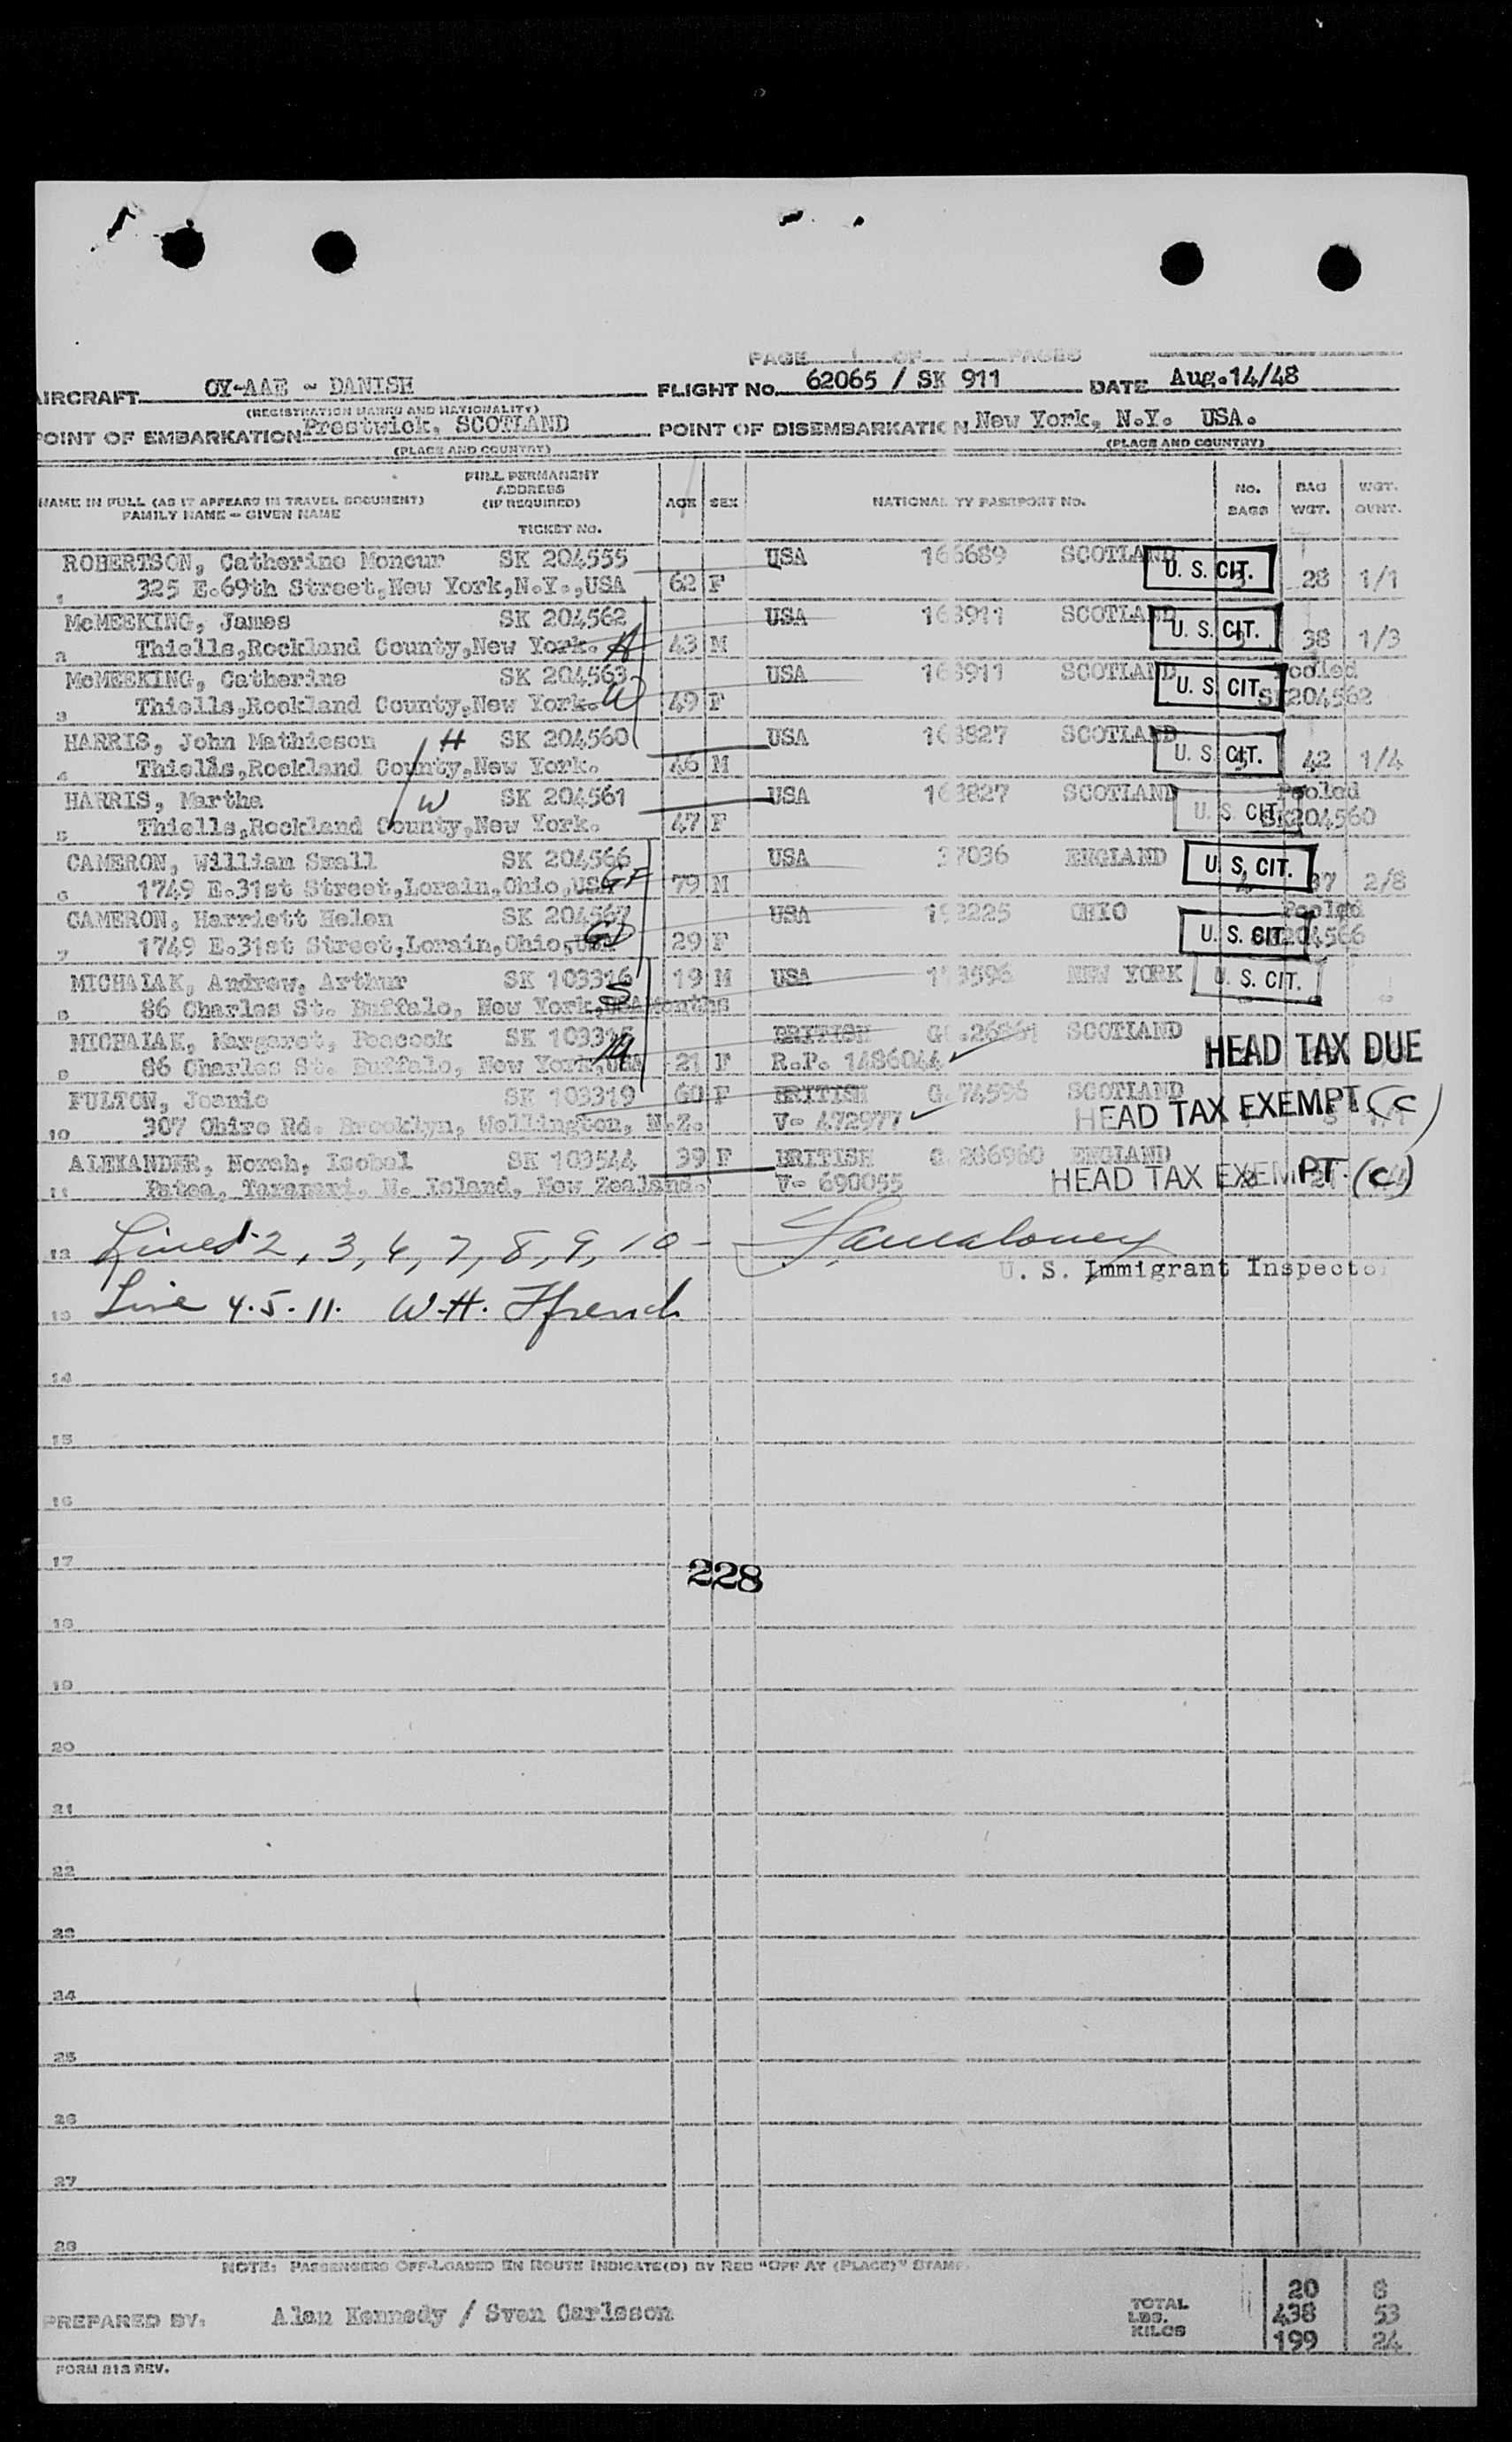 PAGE 1 OF PAGES
AIRCRAFT OY-AAE - DANISH FLIGHT No. 62065 / SK 911 DATE Aug.14/48
(REGISTRATION MARKS AND NATIONALITY)
POINT OF EMBARKATION Prestwick, SCOTLAND POINT OF DISEMBARKATION New York, N.Y. USA.
(PLACE AND COUNTRY) (PLACE AND COUNTRY)
NAME IN FULL (AS IT APPEARS IN TRAVEL DOCUMENT) FAMILY NAME - GIVEN NAME FULL PERMANENT ADDRESS (IF REQUIRED) TICKET No. AGE SEX NATIONALITY PASSPORT No. No. BAGS BAG WGT. WGT. OVNT.
ROBERTSON, Catherine Moncur SK 204555 USA 166689 SCOTLAND U. S. CIT.
1 325 E.69th Street,New York,N.Y.,USA 62 F 28 1/1
McMEEKING, James SK 204562 USA 163911 SCOTLAND U. S. CIT.
2 Thiells,Rockland County,New York. H 43 M 38 1/3
McMEEKING, Catherine SK 204563 USA 163911 SCOTLAND U. S. CIT. Pooled
3 Thiells,Rockland County,New York. W 49 F SK204562
HARRIS, John Mathieson H SK 204560 USA 163827 SCOTLAND U. S. CIT.
4 Thiells,Rockland County,New York. 46 M 42 1/4
HARRIS, Martha W SK 204561 USA 163827 SCOTLAND U. S. CIT. Pooled
5 Thiells,Rockland County,New York. 47 F SK204560
CAMERON, William Small SK 204566 USA 37036 ENGLAND U. S. CIT.
6 1749 E.31st Street,Lorain,Ohio,USA GF 79 M 2/8
CAMERON, Harriett Helen SK 204567 USA 192225 OHIO U. S. CIT. Pooled
7 1749 E.31st Street,Lorain,Ohio,USA GD 29 F SK204566
MICHALAK, Andrew, Arthur SK 103316 19 M USA NEW YORK U. S. CIT.
8 86 Charles St. Buffalo, New York,USA S months
MICHALAK, Margaret, Peacock SK 103315 BRITISH SCOTLAND HEAD TAX DUE
9 86 Charles St. Buffalo, New York,USA M 21 F R.P. 1486044
FULTON, Jeanie SK 103319 60 F BRITISH G. 74596 SCOTLAND
10 307 Ohiro Rd. Brooklyn, Wellington, N.Z. V- 472977 HEAD TAX EXEMPT (C)
ALEXANDER, Norah, Isobel SK 103544 39 F BRITISH G 286960 ENGLAND
11 Patea, Taranaki, N. Island, New Zealand. V- 690055 HEAD TAX EXEMPT. (C)
12 Lines 1-2, 3, 6, 7, 8, 9, 10 -
U. S. Immigrant Inspector
13 Line 4.5.11. W.H. Ffrench
14
15
16
17
228
18
19
20
21
22
23
24
25
26
27
28
NOTE: PASSENGERS OFF-LOADED EN ROUTE INDICATE(D) BY RED "OFF AT (PLACE)" STAMP.
PREPARED BY: Alan Kennedy / Sven Carlsson
TOTAL 20 8
LBS. 438 53
KILOS 199 24
FORM 813 REV.